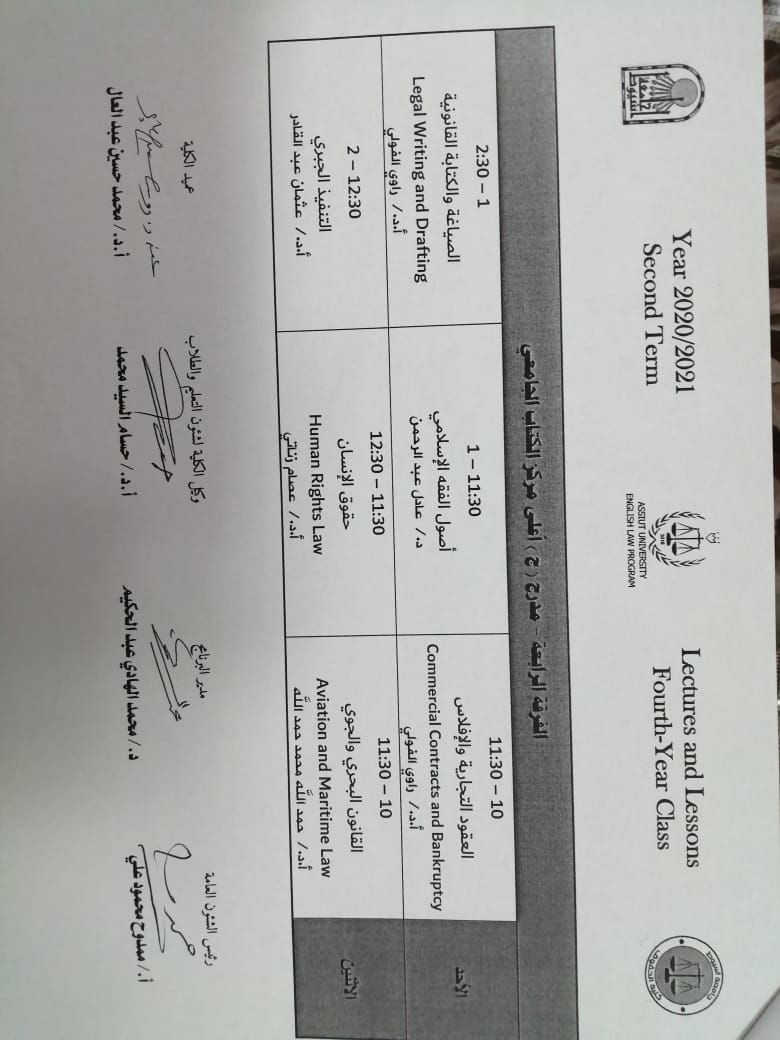 جامعة
اسيوط
Year 2020/2021
Second Term
2018
ASSIUT UNIVERSITY
ENGLISH LAW PROGRAM
Lectures and Lessons
Fourth-Year Class
جامعة أسيوط
كلية الحقوق
الفرقة الرابعة - مدرج (ج) أعلى مركز الكتاب الجامعي
الأحد
11:30 – 10
العقود التجارية والإفلاس
Commercial Contracts and Bankruptcy
أ.د./ راوي الفولي
1 – 11:30
أصول الفقه الإسلامي
د./ عادل عبد الرحمن
2:30 – 1
الصياغة والكتابة القانونية
Legal Writing and Drafting
أ.د./ راوي الفولي
الاثنين
11:30 – 10
القانون البحري والجوي
Aviation and Maritime Law
أ.د./ حمد الله محمد حمد الله
12:30 – 11:30
حقوق الإنسان
Human Rights Law
أ.د./ عصام زناتي
2 – 12:30
التنفيذ الجبري
أ.د./ عثمان عبد القادر
رئيس الشئون العامة
أ./ ممدوح محمود علي
مدير البرنامج
د./ محمد الهادي عبد الحكيم
وكيل الكلية لشئون التعليم والطلاب
أ.د./ حسام السيد محمد
عميد الكلية
أ.د./ محمد حسين عبد العال